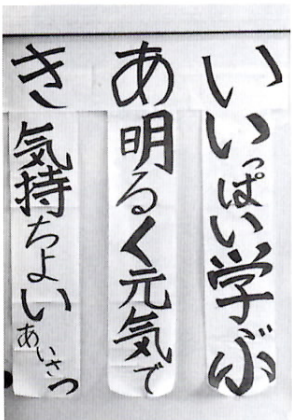 い
いっぱい学ぶ
あ
明るく元気で
き
気持ちよいあいさつ